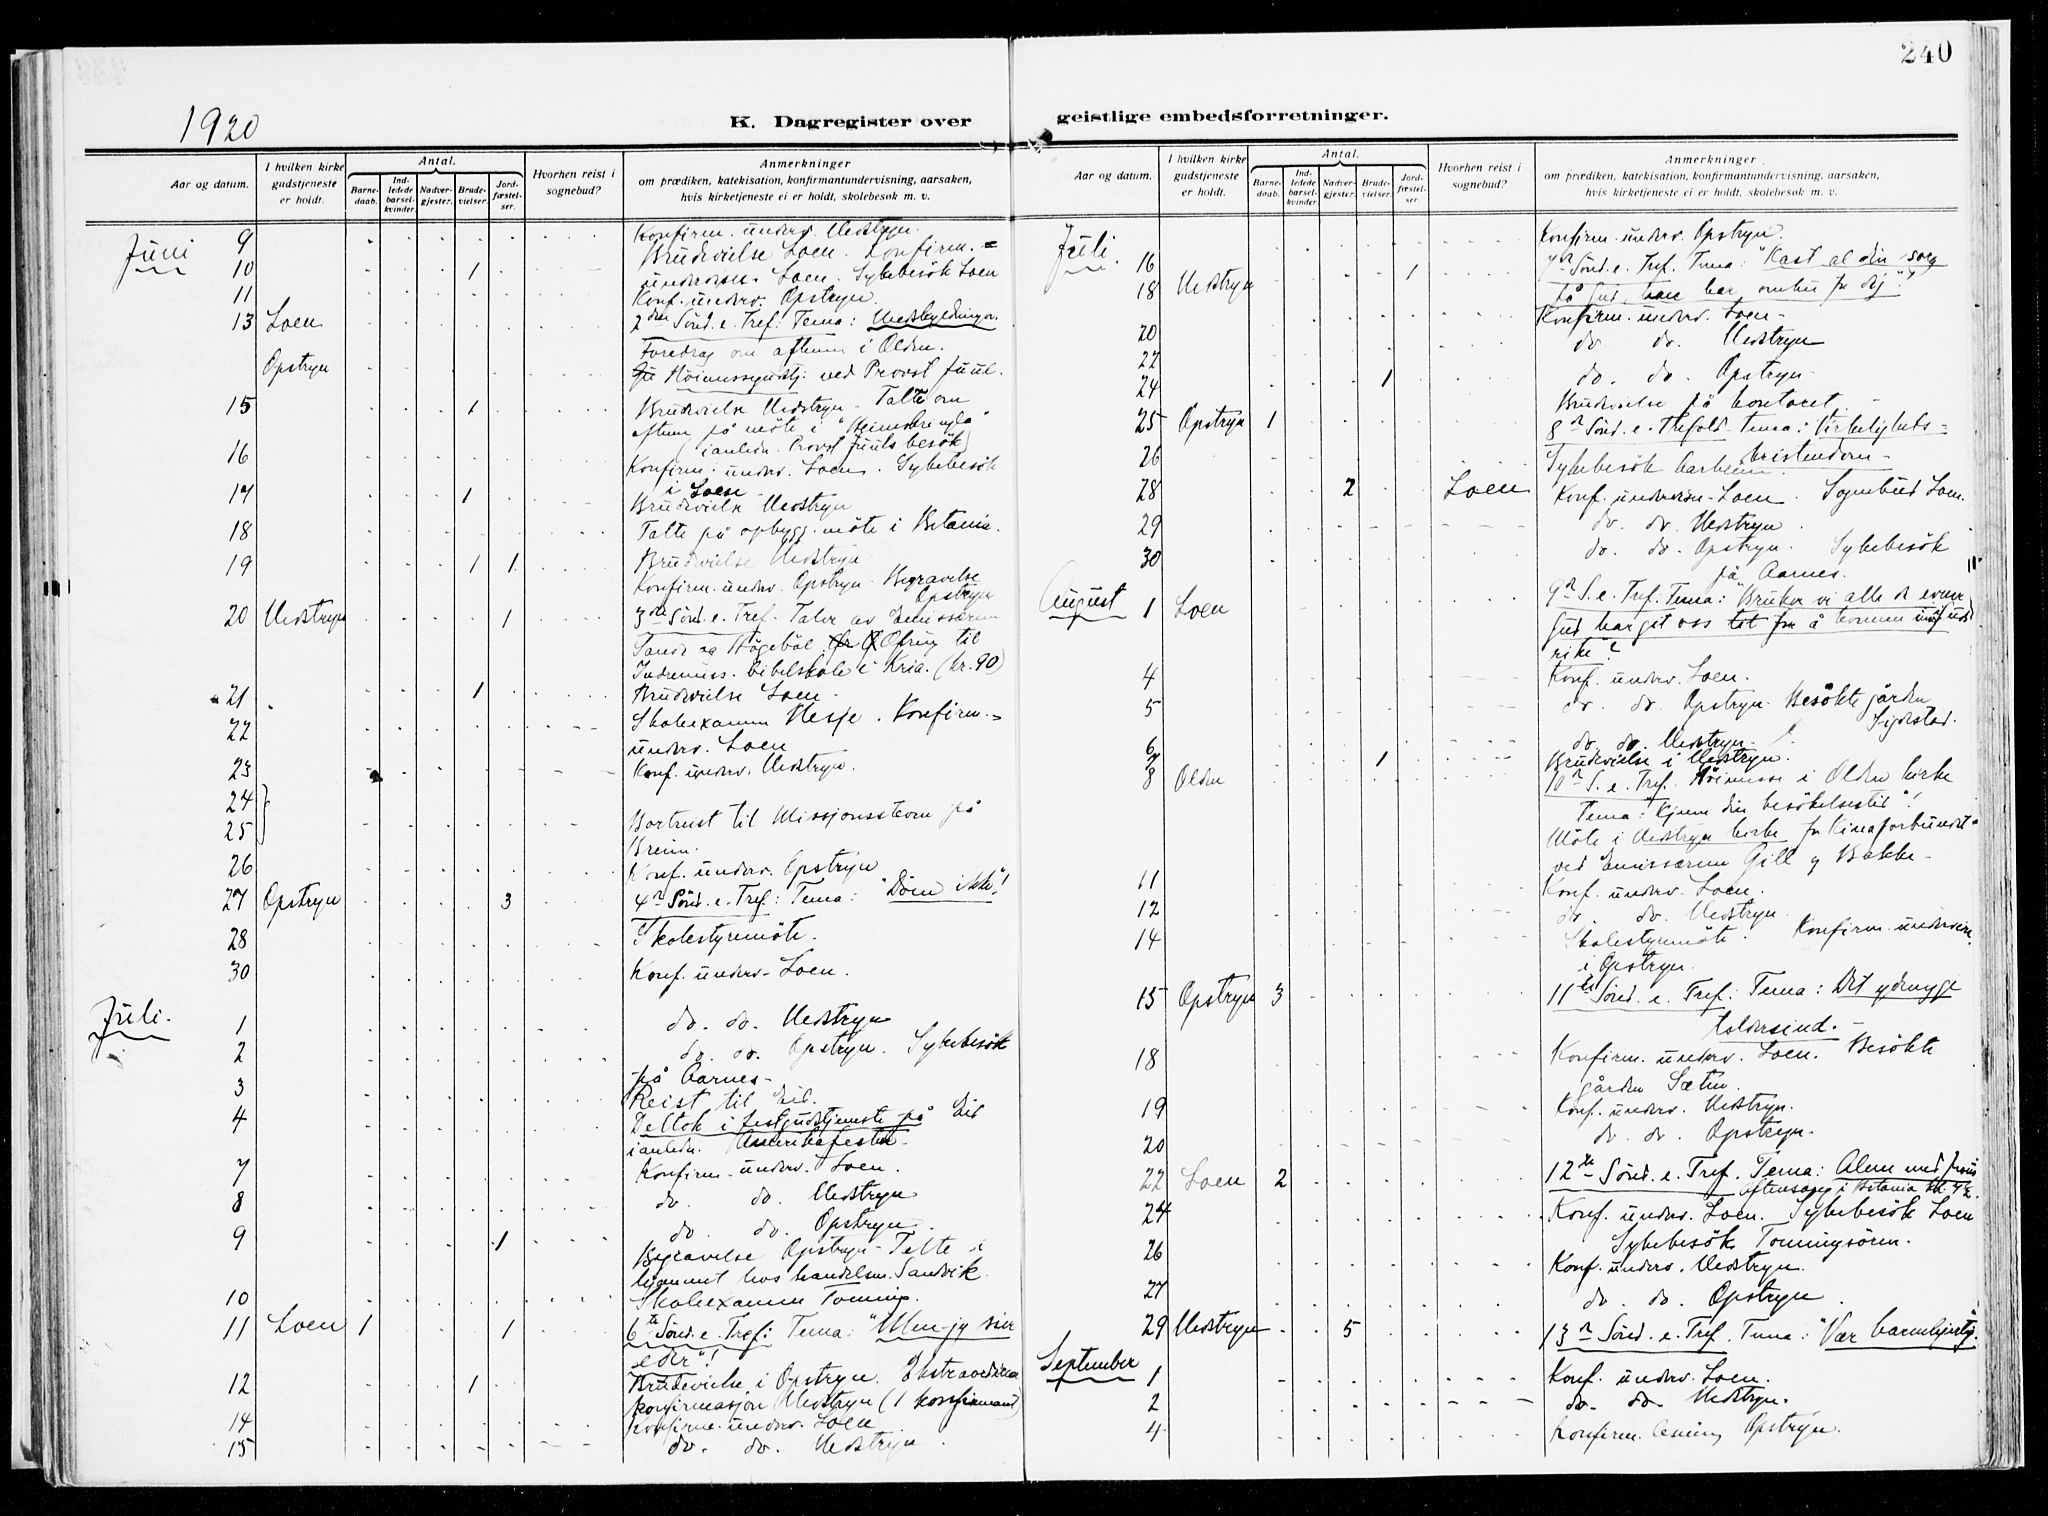 240
1920
K. Dagregister over geistlige embedsforretninger.
Aar og datum.
I hvilken kirke gudstjeneste er holdt.
Antal.
Barnedaab.
Indledede barselkvinder.
Nadvergjester.
Brudevielser.
Jordfæstelser.
Hvorhen reist i sognebud?
Anmerkninger
om prædiken, katekisation, konfirmantundervisning, aarsaken,
hvis kirketjeneste ei er holdt, skolebesøk m. v.
Juni 9 Konfirm. underv. Nedstryn.
10 1 Brudevielse Loen. Konfirm.=
undervisn. Loen. Sykebesök Loen
11 Konf. underv. Opstryn.
13 Loen 2den Sönd. e. Tref: Tema:
Foredrag om aftenen i Olden.
Opstryn Höimessegudstj. ved Provst Juul.
15 1 Brudevielse Nedstryn - Talte om
aftenen på möte i "Heimskringla"
(i anledn. Provst Juuls besök)
16 Konfirm. underv. Loen. Sykebesök
i Loen
17 1 Brudevielse Nedstryn
18 Talte på opbygg. möte i Betania.
19 1 1 Brudevielse Nedstryn
Konfirm. underv. Opstryn - Begravelse
Opstryn
20 Nedstryn 1 3die Sönd. e. Tref. Taler av Emissærene
Sande og Högeböl. Ofring til
Indremiss. bibelskole i Kria. (kr. 90)
21 1 Brudevielse Loen.
22 Skoleexamen Hesje. Konfirm.=
underv. Loen
23 Konf. underv. Nedstryn.
24
25 Bortreist til Missjonsstevne på
Breim.
26 Konf. underv. Opstryn
27 Opstryn 3 4de Sönd. e. Tref: Tema: "Döm ikke"!
28 Skolestyremöte.
30 Konf. underv. Loen.
Juli. 1 do. do. Nedstryn
2 do. do. Opstryn. Sykebesök
på Aarnes.
3 Reist til Eid.
4 Deltok i festgudstjeneste på Eid
i anledn. Amerikafesten.
7 Konfirm. underv. Loen.
8 do do. Nedstryn
9 1 do do. Opstryn.
Begravelse Opstryn - Talte i
hjemmet hos handelsm. Sandvik.
10 Skoleexamen Tonning.
11 Loen 1 1 6te Sönd. e. Tref: Tema: "Men jeg sier
eder"!
12 1 Brudevielse i Opstryn. Ekstraordinær
konfirmasjon Nedstryn (1 konfirmant)
14 Konfirm. underv. Loen
15 do. do. Nedstryn.
Aar og datum.
I hvilken kirke gudstjeneste er holdt.
Antal.
Barnedaab.
Indledede barselkvinder.
Nadvergjester.
Brudevielser.
Jordfæstelser.
Hvorhen reist i sognebud?
Anmerkninger
om prædiken, katekisation, konfirmantundervisning, aarsaken,
hvis kirketjeneste ei er holdt, skolebesøk m. v.
Juli. 16 Konfirm. underv. Opstryn.
18 Nedstryn 1 7de Sönd. e. Tref. Tema: "Kast al din sorg
på Gud, han har omhu for dig"!
20 Konfirm. underv. Loen.
22 do. do. Nedstryn
24 1 do. do. Opstryn.
Brudevielse på kontoret.
25 Opstryn 1 8de Sönd. e. Trefold. Tema: Virkeligheds=
kristendom.
26 Sykebesök
28 2 Loen Konf. undervisn. Loen. Sognebud Loen.
29 do. do. Nedstryn.
30 do. do. Opstryn. Sykebesök
på Aarnes.
August 1 Loen 9de S. e. Tref. Tema: "Bruker vi alle de evner
Gud har git oss for å komme ind i Guds
rike"?
4 Konf. underv. Loen.
5 do. do. Opstryn. Besökte gården
6 do. do. Nedstryn.
7 1 Brudevielse i Nedstryn.
8 Olden 10de S. e. Tref. Höimesse i Olden kirke
Tema: "Kjenn din besökelsestid"!
Möte i Nedstryn kirke for Kinaforbundet
ved Emissærene Gill og Bakke.
11 Konf. underv. Loen.
12 do. do. Nedstryn.
14 Skolestyremöte. Konfirm. undervisn.
i Opstryn.
15 Opstryn 3 11te Sönd. e. Tref: Tema: Det ydmyge
toldersind.
18 Konfirm. underv. Loen. Besökte
gården Sæten.
19 Konf. underv. Nedstryn.
20 do. do. Opstryn.
22 Loen 2 12te Sönd. e. Tref. Tema: Alene med Jesus
Aftensang i Betania
24 Konf. underv. Loen. Sykebesök Loen
26 Sykebesök Tonningsören.
Konf. underv. Nedstryn.
27 do. do. Opstryn.
29 Nedstryn 5 13de Sönd. e. Tref. Tema: "Vær barmhjertig.
September 1 Konf. underv. Loen.
2 do. do. Nedstryn.
4 Konfirm. Opstryn.